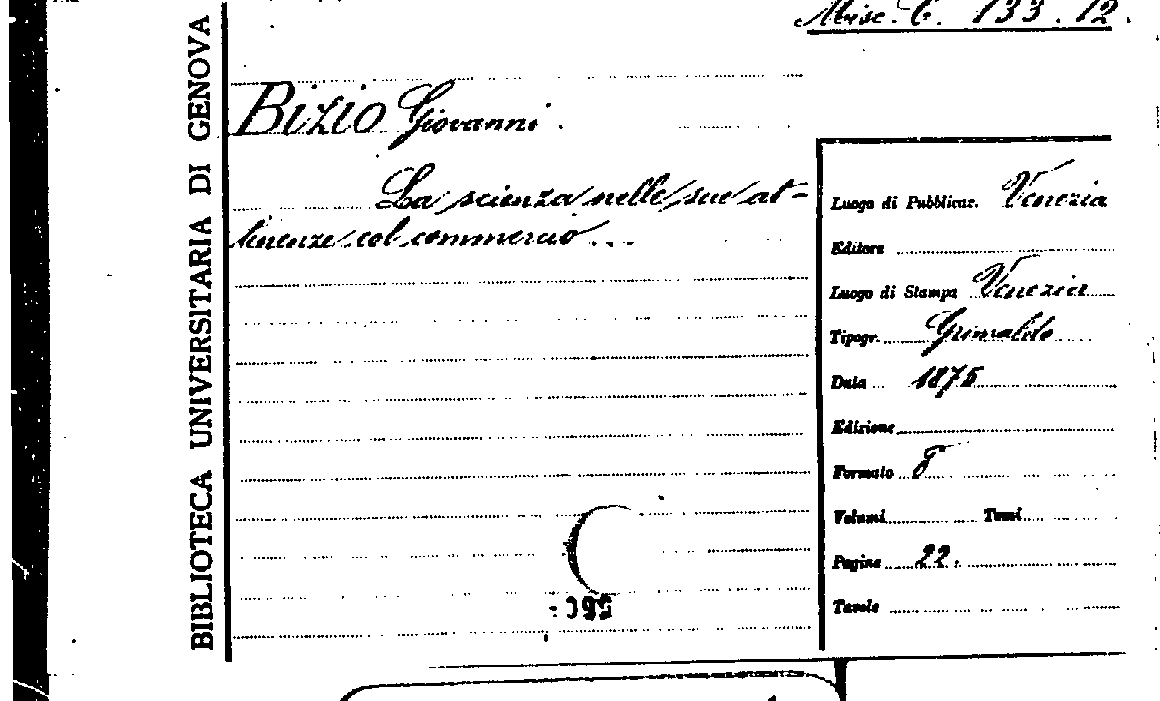 Misc. C. 133.12.
BIBLIOTECA UNIVERSITARIA DI GENOVA
BIZIO Giovanni.
La scienza nelle sue at-
tinenze col commercio...
Luogo di Pubblicaz. Venezia
Editore
Luogo di Stampa Venezia
Tipogr. Grimaldo
Data 1875
Edizione
Formato 8
Volumi Tomi
Pagine 22.
Tavole